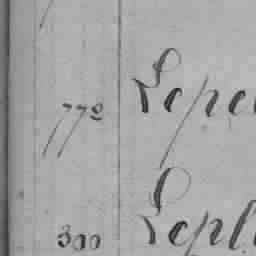 772 Lepe
300 Lepl